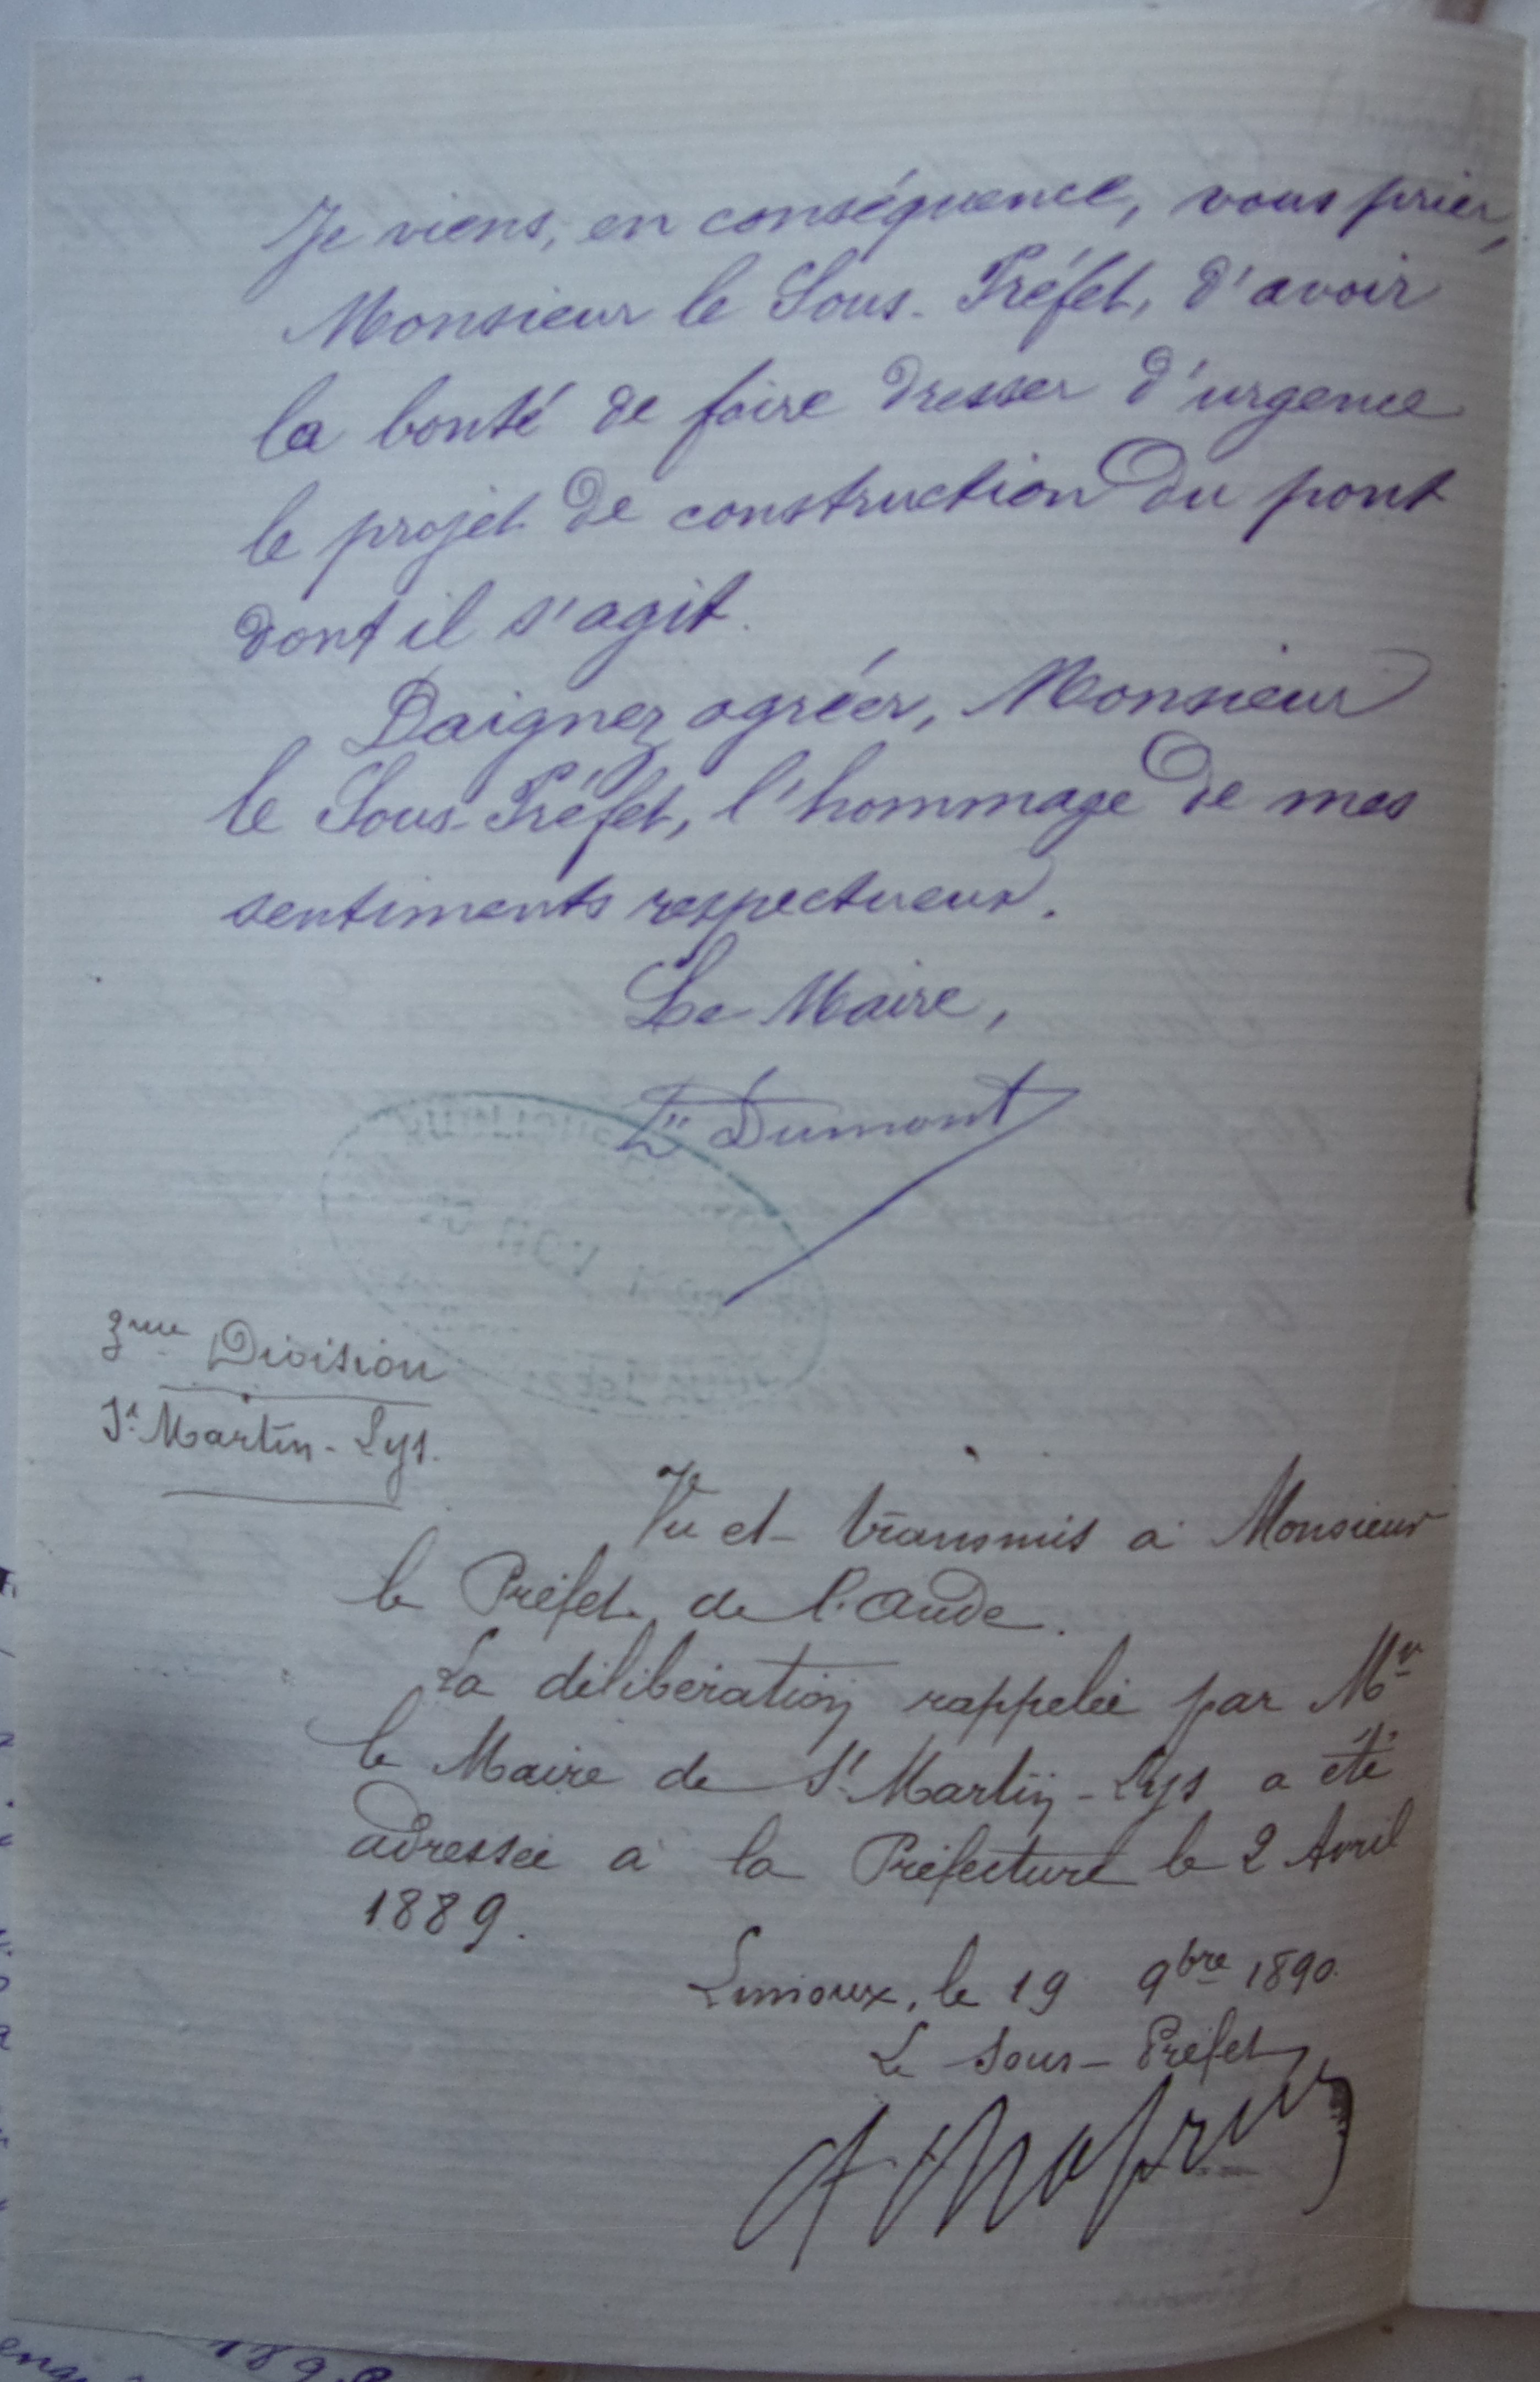 Je viens, en conséquence, vous prier,
Monsieur le Sous-Préfet, d'avoir
la bonté de faire dresser d'urgence
le projet de construction du pont
dont il s'agit.
Daignez agréer, Monsieur
le Sous-Préfet, l'hommage de mes
sentiments respectueux.
Le Maire,
Dumont
3me Division
St Martin-Lys.
Vu et transmis à Monsieur
le Préfet de l'Aude.
La délibération rappelée par Mr
le Maire de St Martin-Lys a été
adressée à la Préfecture le 2 Avril
1889.
Limoux, le 19 9bre 1890.
Le Sous-Préfet
189